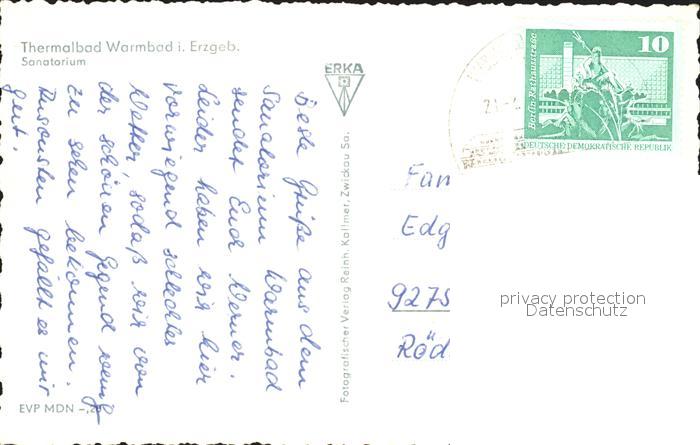 Thermalbad Warmbad i. Erzgeb.
Sanatorium
Beste Grüße aus dem
Sanatorium Warmbad
sendet Euch Werner.
Leider haben wir hier
vorwiegend schlechtes
Wetter, sodaß wir von
der schönen Gegend wenig
zu sehen bekommen.
Ansonsten gefällt es mir
gut.
EVP MDN -,20
ERKA
Fotografischer Verlag Reinh. Kallmer, Zwickau Sa.
10
Berlin-Rathausstraße
DEUTSCHE DEMOKRATISCHE REPUBLIK
21.-
Fam
Edg
9275
Röd
privacy protection
Datenschutz